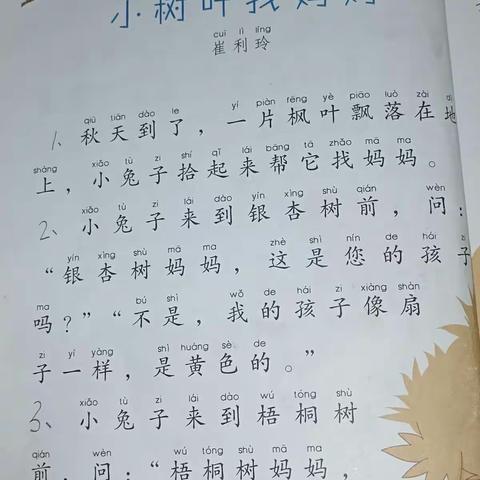 小树叶找妈妈
cuī lì líng
崔利玲
qiū tiān dào le yí piàn fēng yè piāo luò zài dì
1、秋天到了，一片枫叶飘落在地
shàng xiǎo tù zi shí qǐ lái bāng tā zhǎo mā ma
上，小兔子拾起来帮它找妈妈。
xiǎo tù zi lái dào yín xìng shù qián wèn
2、小兔子来到银杏树前，问：
yín xìng shù mā ma zhè shì nín de hái zi
“银杏树妈妈，这是您的孩子
ma bú shì wǒ de hái zi xiàng shàn
吗？”“不是，我的孩子像扇
zi yí yàng shì huáng sè de
子一样，是黄色的。”
xiǎo tù zi lái dào wú tóng shù
3、小兔子来到梧桐树
qián wèn wú tóng shù mā ma
前，问：“梧桐树妈妈，